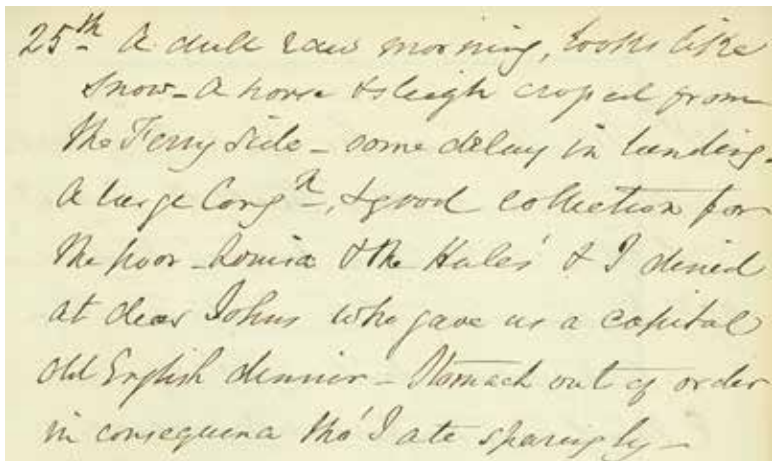 25th A dull raw morning, looks like
snow - A horse & sleigh crossed from
the Ferry side - some delay in landing -
A large Congn, & good collection for
the poor - Louisa & the Hales' & I dined
at dear Johns who gave us a capital
old English dinner - Stomach out of order
in consequence tho' I ate sparingly -